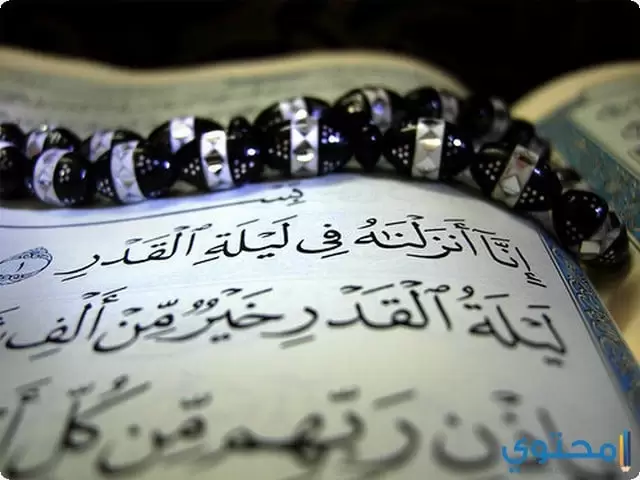 إِنَّآ أَنزَلْنَٰهُ فِى لَيْلَةِ ٱلْقَدْرِ ١
لَيْلَةُ ٱلْقَدْرِ خَيْرٌ مِّنْ أَلْفِ
رَبِّهِم مِّن كُلِّ
محتوي